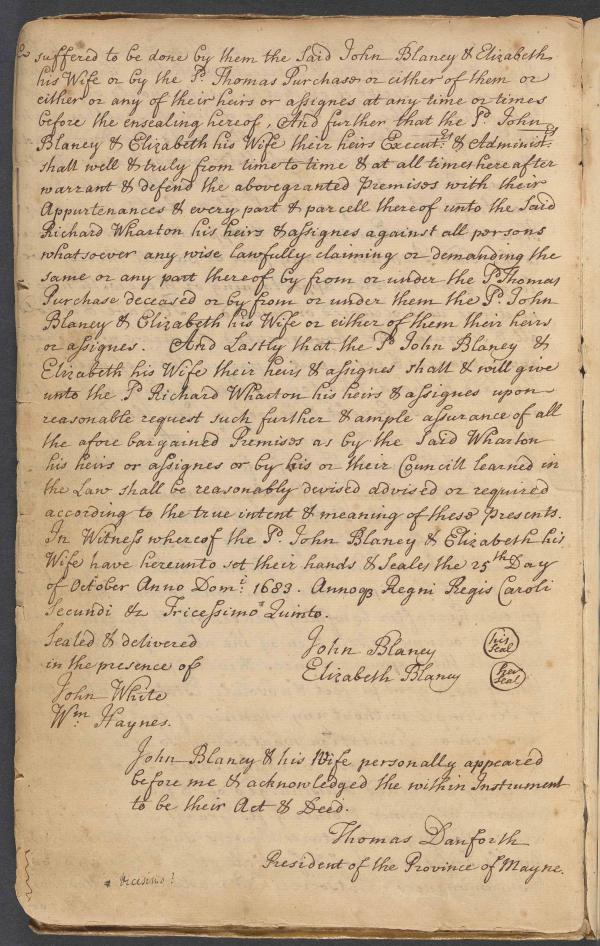 suffered to be done by them the Said John Blaney & Elizabeth
his Wife or by the Sd. Thomas Purchase or either of them or
either or any of their heirs or assignes at any time or times
before the ensealing hereof, And further that the Sd. John
Blaney & Elizabeth his Wife their heirs Execut.rs & Administ.rs
shall well & truly from time to time & at all times hereafter
warrant & defend the abovegranted Premises with their
Appurtenances & every part & parcell thereof unto the Said
Richard Wharton his heirs & assignes against all persons
whatsoever any wise lawfully claiming or demanding the
same or any part thereof by from or under the Sd. Thomas
Purchase deceased or by from or under them the Sd. John
Blaney & Elizabeth his Wife or either of them their heirs
or assignes. And Lastly that the Sd. John Blaney &
Elizabeth his Wife their heirs & assignes shall & will give
unto the Sd. Richard Wharton his heirs & assignes upon
reasonable request such further & ample assurance of all
the afore bargained Premises as by the Said Wharton
his heirs or assignes or by his or their Councill learned in
the Law shall be reasonably devised advised or required
according to the true intent & meaning of these Presents.
In Witness whereof the Sd. John Blaney & Elizabeth his
Wife have hereunto set their hands & Seales the 25th Day
of October Anno Dom.i 1683. Annoq Regni Regis Caroli
Secundi &c Tricessimo * Quinto.
Sealed & delivered John Blaney his Seal
in the presence of Elizabeth Blaney her Seal
John White
Wm. Haynes.
John Blaney & his Wife personally appeared
before me & acknowledged the within Instrument
to be their Act & Deed.
Thomas Danforth
President of the Province of Mayne.
* Vicesimo?